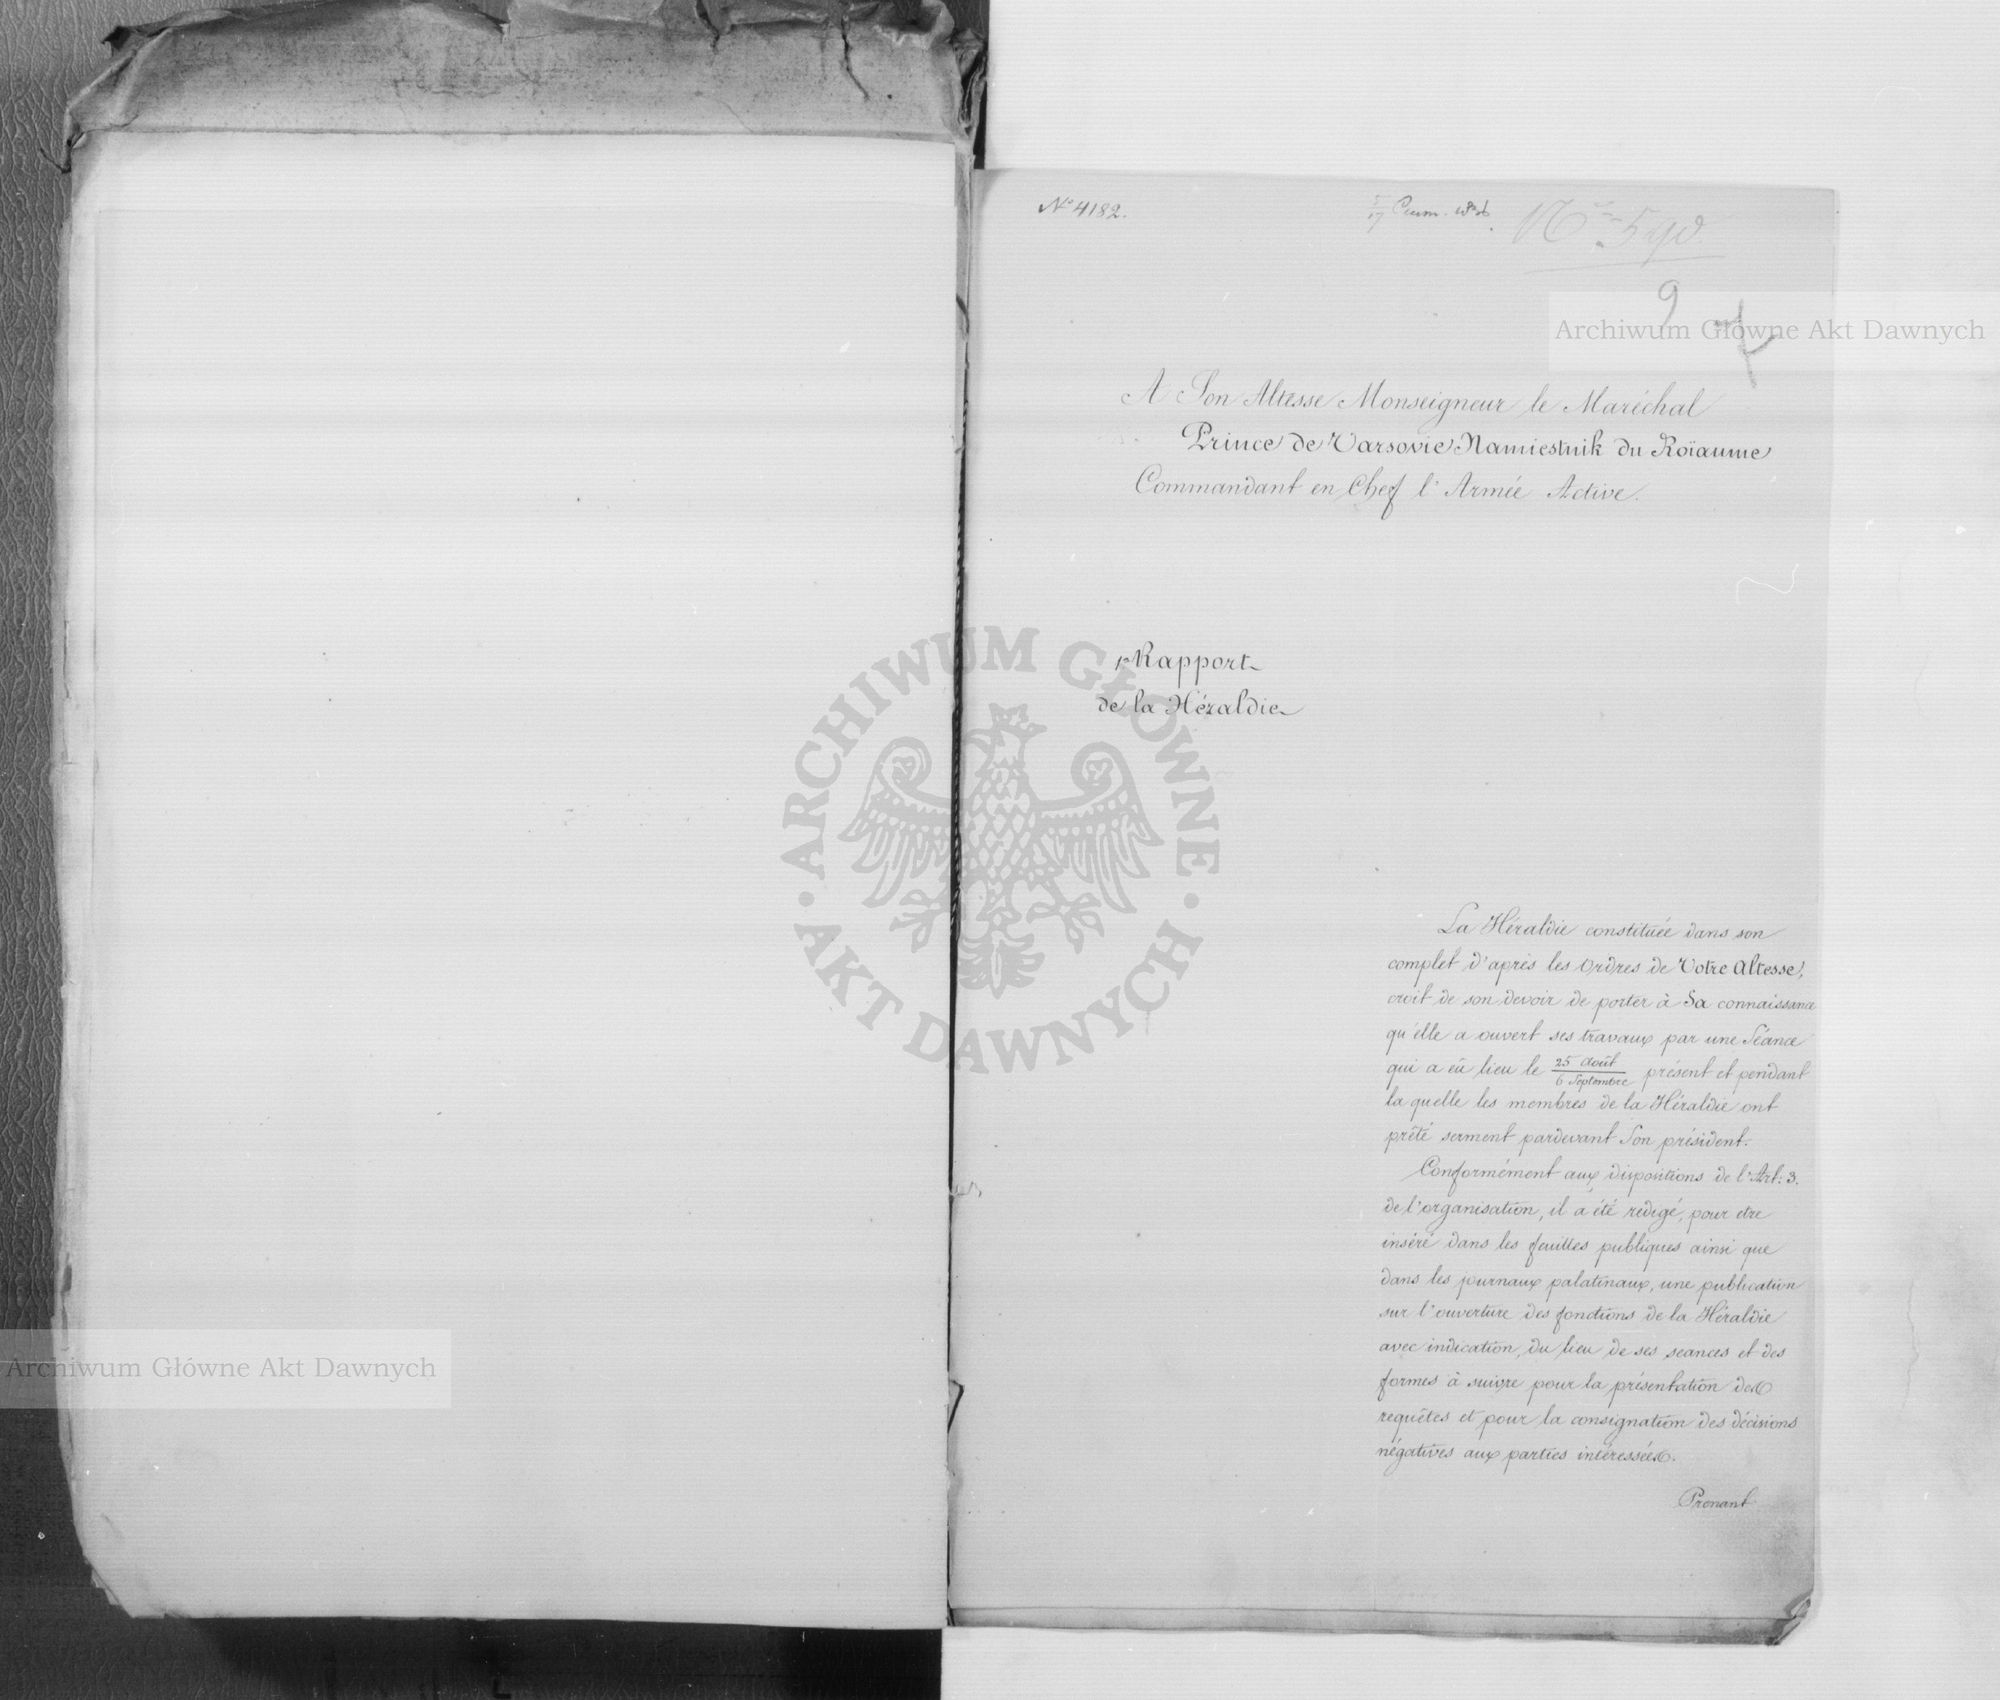 No 4182.
5/17 1836
No 590
9
A Son Altesse Monseigneur le Maréchal
Prince de Varsovie Namiestnik du Roïaume
Commandant en Chef l'Armée Active.
Rapport
de la Héraldie
La Héraldie constituée dans son
complet d'après les Ordres de Votre Altesse,
croit de son devoir de porter à Sa connaissance
qu'elle a ouvert ses travaux par une Séance
qui a eû lieu le 25 Août / 6 Septembre présent et pendant
la quelle les membres de la Héraldie ont
prêté serment pardevant Son président.
Conformément aux dispositions de l'Art: 3.
de l'organisation, il a été redigé, pour etre
inséré dans les feuilles publiques ainsi que
dans les journaux palatinaux, une publication
sur l'ouverture des fonctions de la Héraldie
avec indication, du lieu de ses seances et des
formes à suivre pour la présentation des
requêtes et pour la consignation des décisions
négatives aux parties intéressées.
Prenant
Archiwum Główne Akt Dawnych
ARCHIWUM GŁÓWNE AKT DAWNYCH
Archiwum Główne Akt Dawnych